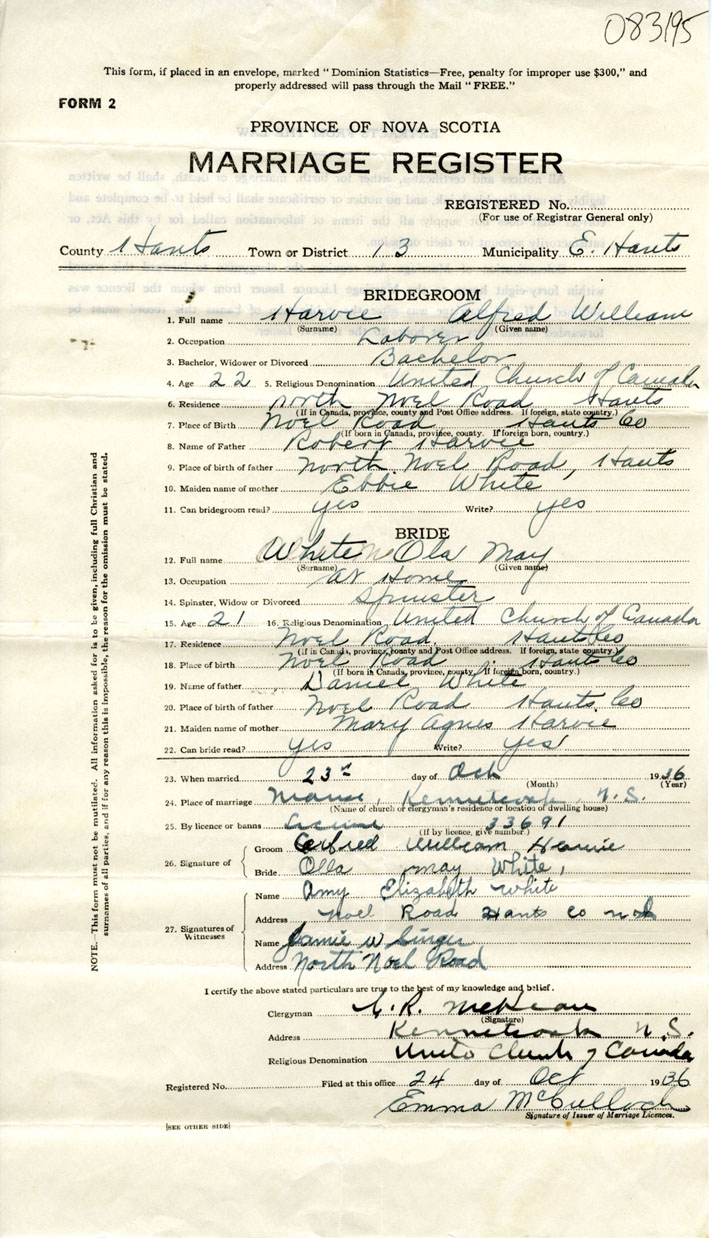 083195
This form, if placed in an envelope, marked "Dominion Statistics—Free, penalty for improper use $300," and
properly addressed will pass through the Mail "FREE."
FORM 2
PROVINCE OF NOVA SCOTIA
MARRIAGE REGISTER
REGISTERED No.
(For use of Registrar General only)
County Hants Town or District 13 Municipality E. Hants
BRIDEGROOM
1. Full name Harvie Alfred William
(Surname) (Given name)
2. Occupation Laborer
3. Bachelor, Widower or Divorced Bachelor
4. Age 22 5. Religious Denomination United Church of Canada
6. Residence North Noel Road Hants
(If in Canada, province, county and Post Office address. If foreign, state country.)
7. Place of Birth Noel Road Hants Co
(If born in Canada, province, county. If foreign born, country.)
8. Name of Father Robert Harvie
9. Place of birth of father North Noel Road, Hants
10. Maiden name of mother Ebbie White
11. Can bridegroom read? yes Write? yes
BRIDE
12. Full name White Ola May
(Surname) (Given name)
13. Occupation At Home
14. Spinster, Widow or Divorced Spinster
15. Age 21 16. Religious Denomination United Church of Canada
17. Residence Noel Road. Hants Co
(If in Canada, province, county and Post Office address. If foreign, state country.)
18. Place of birth Noel Road Hants Co
(If born in Canada, province, county. If foreign born, country.)
19. Name of father Daniel White
20. Place of birth of father Noel Road Hants. Co
21. Maiden name of mother Mary Agnes Harvie
22. Can bride read? yes Write? yes
23. When married 23rd day of Oct 1936
(Month) (Year)
24. Place of marriage Manse, Kennetcook, N.S.
(Name of church or clergyman's residence or location of dwelling house)
25. By licence or banns License 33691
(If by licence, give number.)
26. Signature of
Groom Alfred William Harvie
Bride Olla may White,
27. Signatures of Witnesses
Name Amy Elizabeth White
Address Noel Road Hants Co
Name W
Address North Noel Road
I certify the above stated particulars are true to the best of my knowledge and belief.
Clergyman R. McKean
(Signature)
Address Kennetcook N.S.
Religious Denomination United Church of Canada
Registered No. Filed at this office 24 day of Oct 1936
Emma McCulloch
Signature of Issuer of Marriage Licences.
[SEE OTHER SIDE]
NOTE.—This form must not be mutilated. All information asked for is to be given, including full Christian and
surnames of all parties, and if for any reason this is impossible, the reason for the omission must be stated.